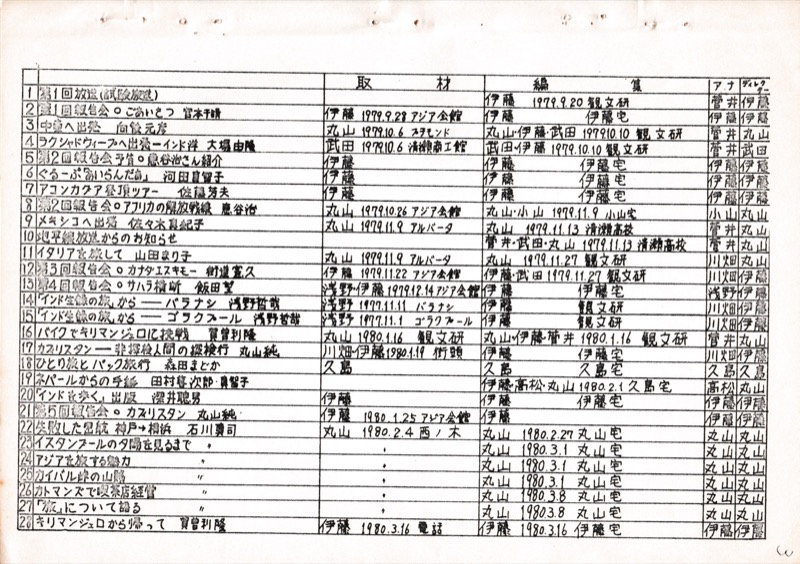 取材 編集 アナ ディレクター
1 第1回放送(試験放送) 伊藤 1979.9.20 観文研 菅井 伊藤
2 第1回報告会。ごあいさつ 宮本千晴 伊藤 1979.9.28 アジア会館 伊藤 伊藤宅 菅井 伊藤
3 中東へ出発 向後元彦 丸山 1979.10.6 丸山・伊藤・武田 1979.10.10 観文研 菅井 丸山
4 ラクシャドウィープへ出発―インド洋 大塚由隆 武田 1979.10.6 清瀬商工館 伊藤 1979.10.10 観文研 菅井 武田
5 第2回報告会予告。恵谷治さん紹介 伊藤 伊藤 伊藤宅 伊藤 伊藤
6 ぐるーぷ・あいらんだあ 河田真智子 伊藤 伊藤 伊藤宅 伊藤 伊藤
7 アコンカグア登頂ツアー 佐藤芳夫 伊藤 伊藤 伊藤宅 伊藤 伊藤
8 第2回報告会。アフリカの解放戦線 恵谷治 丸山 1979.10.26 アジア会館 丸山・小山 1979.11.9 小山宅 小山 丸山
9 メキシコへ出発 佐々木真紀子 丸山 1979.11.9 アルバータ 丸山 1979.11.13 清瀬高校 菅井 丸山
10 地平線放送からのお知らせ 菅井・武田・丸山 1979.11.13 清瀬高校 菅井 丸山
11 イタリアを旅して 山田まり子 丸山 1979.11.9 アルバータ 丸山 1979.11.27 観文研 川畑 丸山
12 第3回報告会。カナダ・エスキモー 街道憲久 伊藤 1979.11.22 アジア会館 伊藤・武田 1979.11.27 観文研 川畑 伊藤
13 第4回報告会。サハラ横断 飯田望 浅野・伊藤 1979.12.14 アジア会館 伊藤 伊藤宅 浅野 伊藤
14 「インド生線の旅」から――バラナシ 浅野哲哉 浅野 1977.11.11 バラナシ 伊藤 観文研 川畑 伊藤
15 「インド生線の旅」から――ゴラクプール 浅野哲哉 浅野 1977.11.1 ゴラクプール 伊藤 観文研 川畑 伊藤
16 バイクでキリマンジェロに挑戦 賀曽利隆 丸山 1980.1.16 観文研 丸山・伊藤・菅井 1980.1.16 観文研 菅井 丸山
17 カフィリスタン――非探検人間の縦横行 丸山純 川畑・伊藤 1980.1.19 街頭 伊藤 伊藤宅 川畑 伊藤
18 ひとり旅とパック旅行 森田まどか 久島 久島 久島宅 久島 久島
19 ネパールからの手紙 田村善次郎・真智子 伊藤・高松・丸山 1980.2.1 久島宅 高松 丸山
20 「インドを歩く」出版 深井聰男 伊藤 伊藤 伊藤宅 伊藤 伊藤
21 第5回報告会。カフィリスタン 丸山純 伊藤 1980.1.25 アジア会館 丸山 丸山
22 失敗した密航 神戸→横浜 石川勇司 丸山 1980.2.4 西ノ木 丸山 1980.2.27 丸山宅 丸山 丸山
23 イスタンブールの夕陽を見るまで 〃 〃 丸山 1980.3.1 丸山宅 丸山 丸山
24 アジアを旅する魅力 〃 〃 丸山 1980.3.1 丸山宅 丸山 丸山
25 カイバル峠の山賊 〃 〃 丸山 1980.3.1 丸山宅 丸山 丸山
26 カトマンズで喫茶店経営 〃 〃 丸山 1980.3.8 丸山宅 丸山 丸山
27 「旅」について語る 〃 〃 丸山 1980.3.8 丸山宅 丸山 丸山
28 キリマンジェロから帰って 賀曽利隆 伊藤 1980.3.16 電話 伊藤 1980.3.16 伊藤宅 伊藤 伊藤